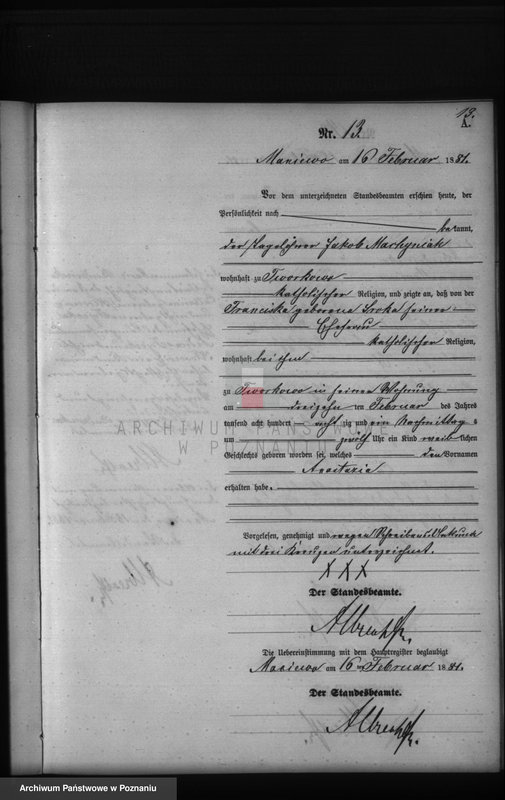 13.
A.
Nr. 13
Maniewo am 16 Februar 1881.
Vor dem unterzeichneten Standesbeamten erschien heute, der
Persönlichkeit nach
bekannt,
der Tagelöhner Jakob
wohnhaft zu Tworkowo
katholischer Religion, und zeigte an, daß von der
Franciska geborene Sroka seiner
Ehefrau
katholischer Religion,
wohnhaft bei ihm
zu Tworkowo in seiner Wohnung
am dreizehn ten Februar des Jahres
tausend acht hundert acht zig und ein Nachmittag s
um zwölf Uhr ein Kind weib lichen
Geschlechts geboren worden sei, welches den Vornamen
erhalten habe.
Vorgelesen, genehmigt und wegen Schreibens Unkunde
mit drei Kreuzen unterzeichnet.
X X X
Der Standesbeamte.
Albrecht
Die Uebereinstimmung mit dem Hauptregister beglaubigt
Maniewo am 16 Februar 1881.
Der Standesbeamte.
Albrecht
ARCHIWUM PAŃSTWOWE
W POZNANIU
Archiwum Państwowe w Poznaniu